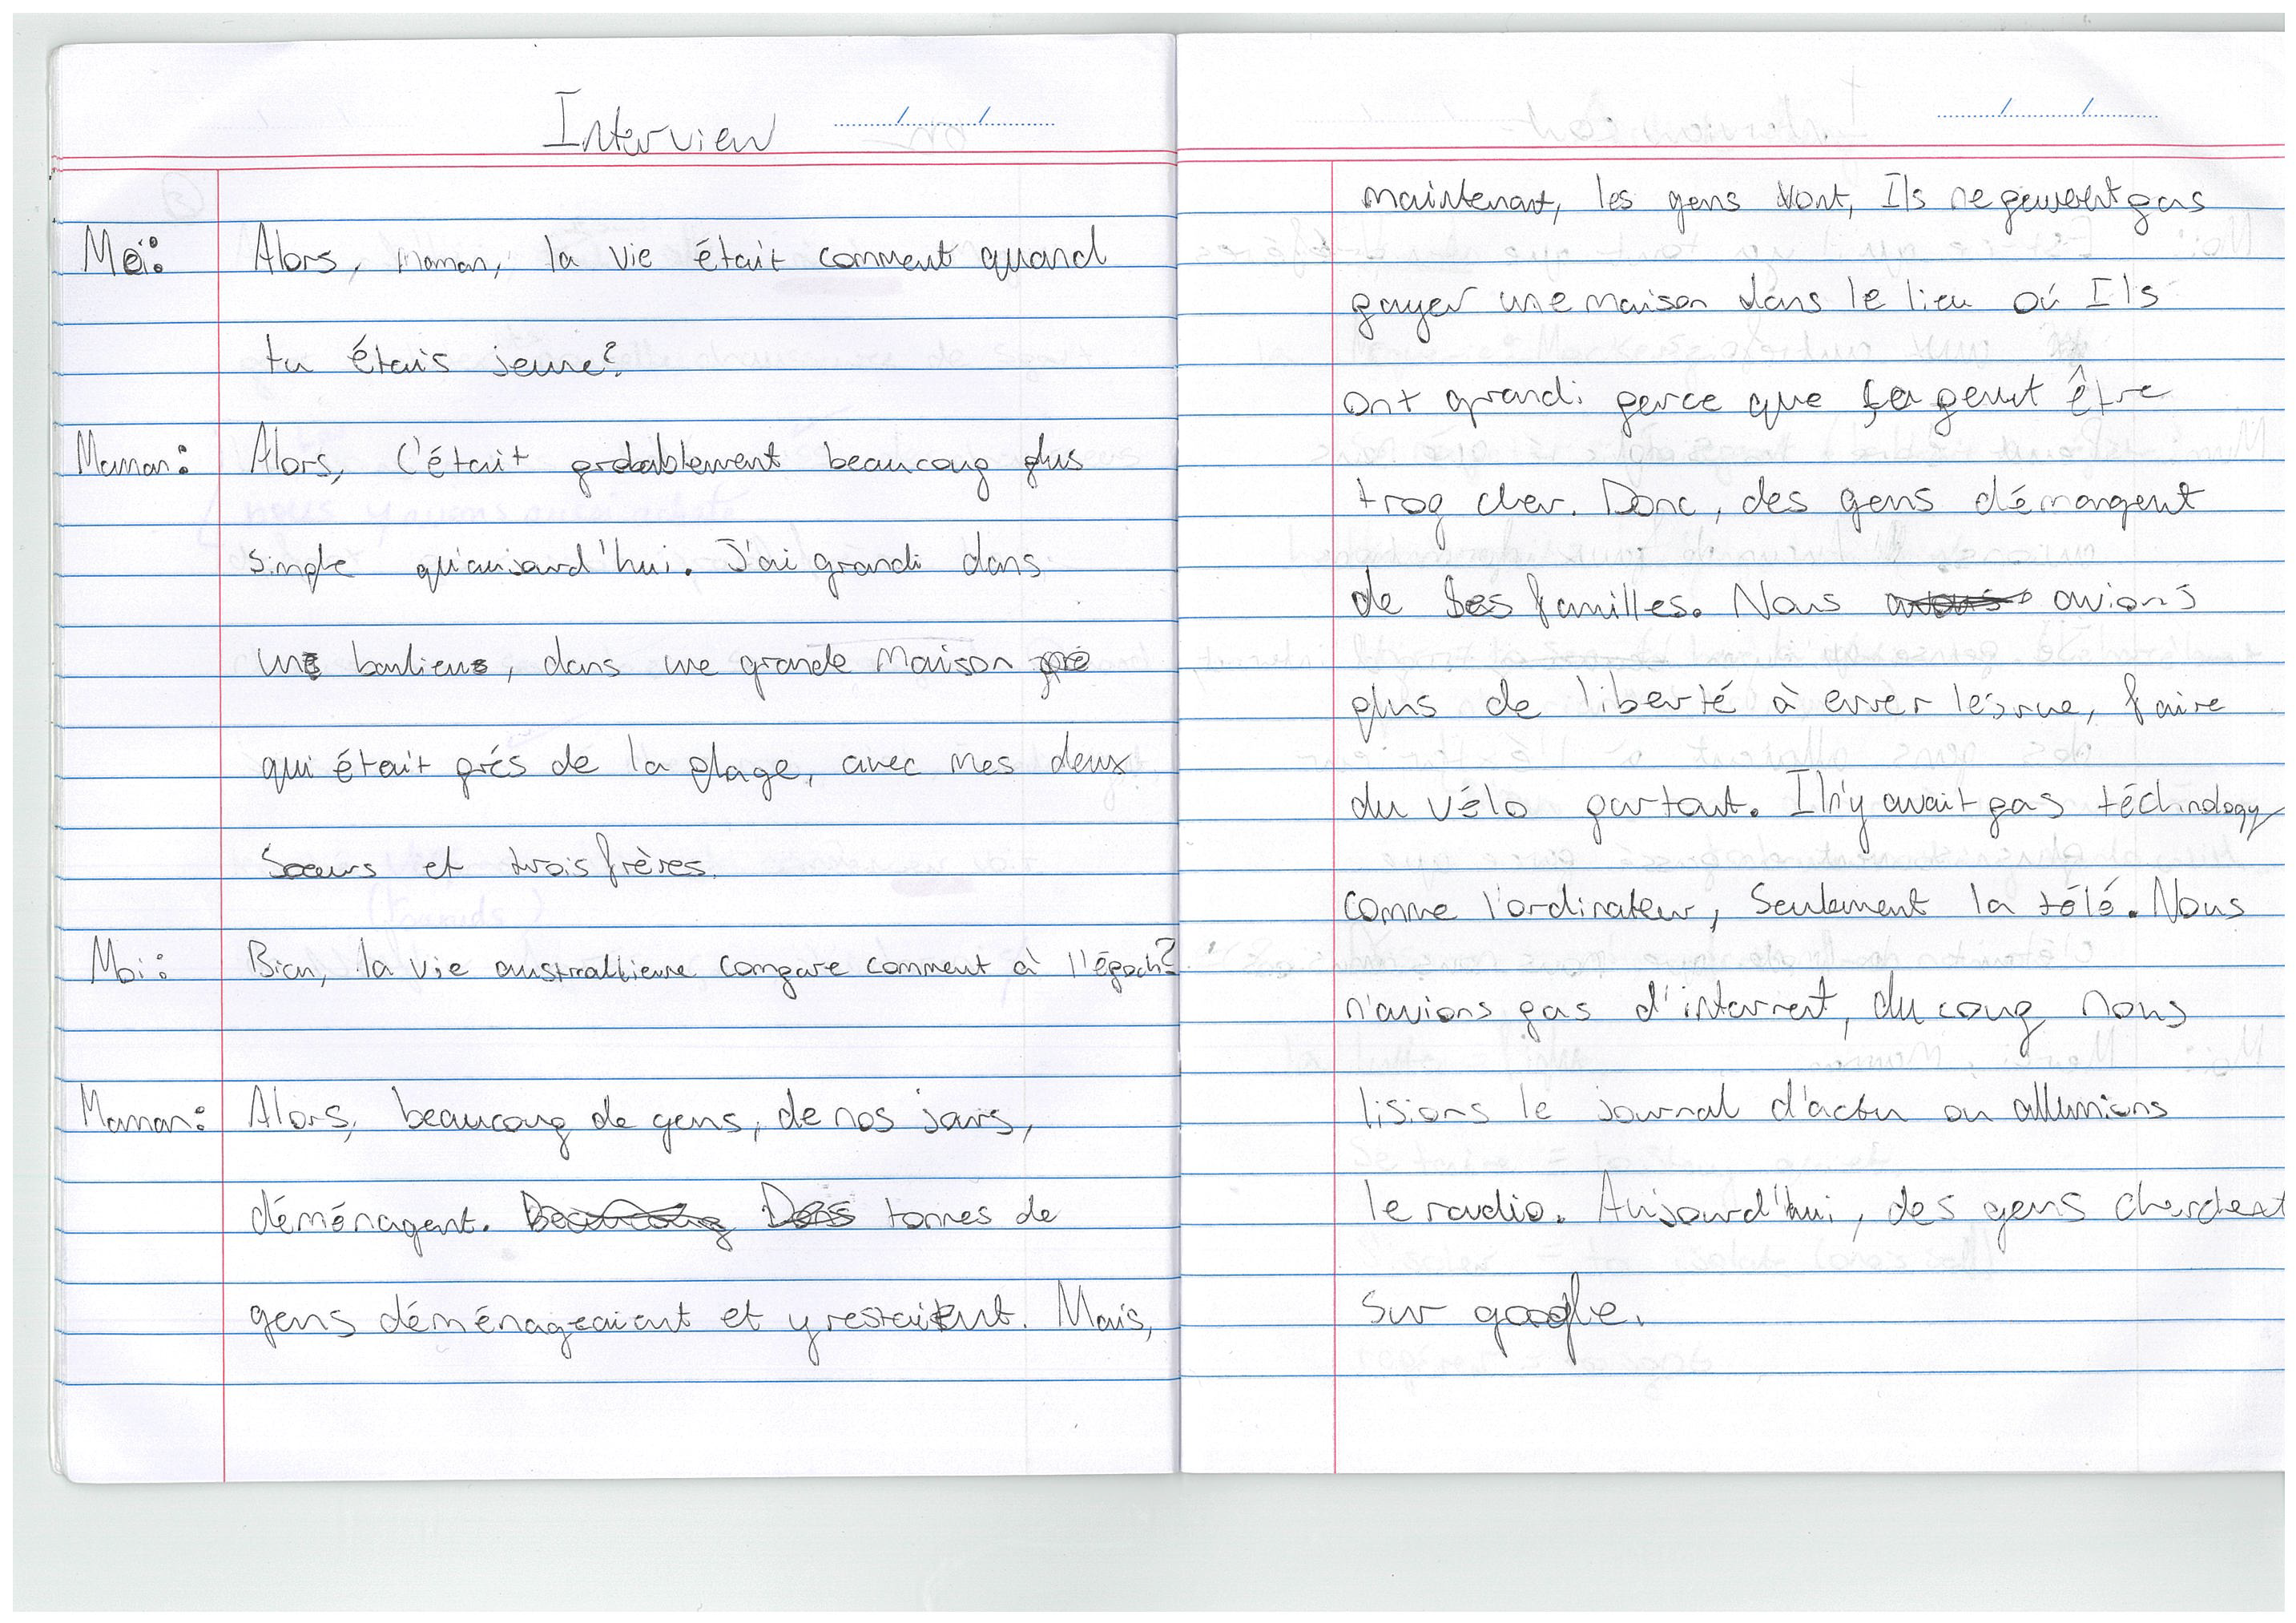 Interview
Moi: Alors, Maman, la vie était comment quand
tu étais jeune?
Maman: Alors, C'était probablement beaucoup plus
simple qu'aujourd'hui. J'ai grandi dans
une banlieue, dans une grande maison
qui était prés de la plage, avec mes deux
soeurs et trois frères.
Moi: Bien, la vie austrailienne compare comment à l'époch?
Maman: Alors, beaucoup de gens, de nos jours,
déménagent. tonnes de
gens déménageaient et y restaient. Mais,
maintenant, les gens vont, Ils ne peuvent pas
payer une maison dans le lieu où Ils
ont grandi perce que ça peut être
trop cher. Donc, des gens démangent
de ses familles. Nous avions
plus de liberté à errer les rue, faire
du vélo partout. Il n'y avait pas téchnology
comme l'ordinateur, Seulement la télé. Nous
n'avions pas d'internet, du coup nous
lisions le journal d'actu ou allumions
le radio. Aujourd'hui, des gens cherchent
sur google.